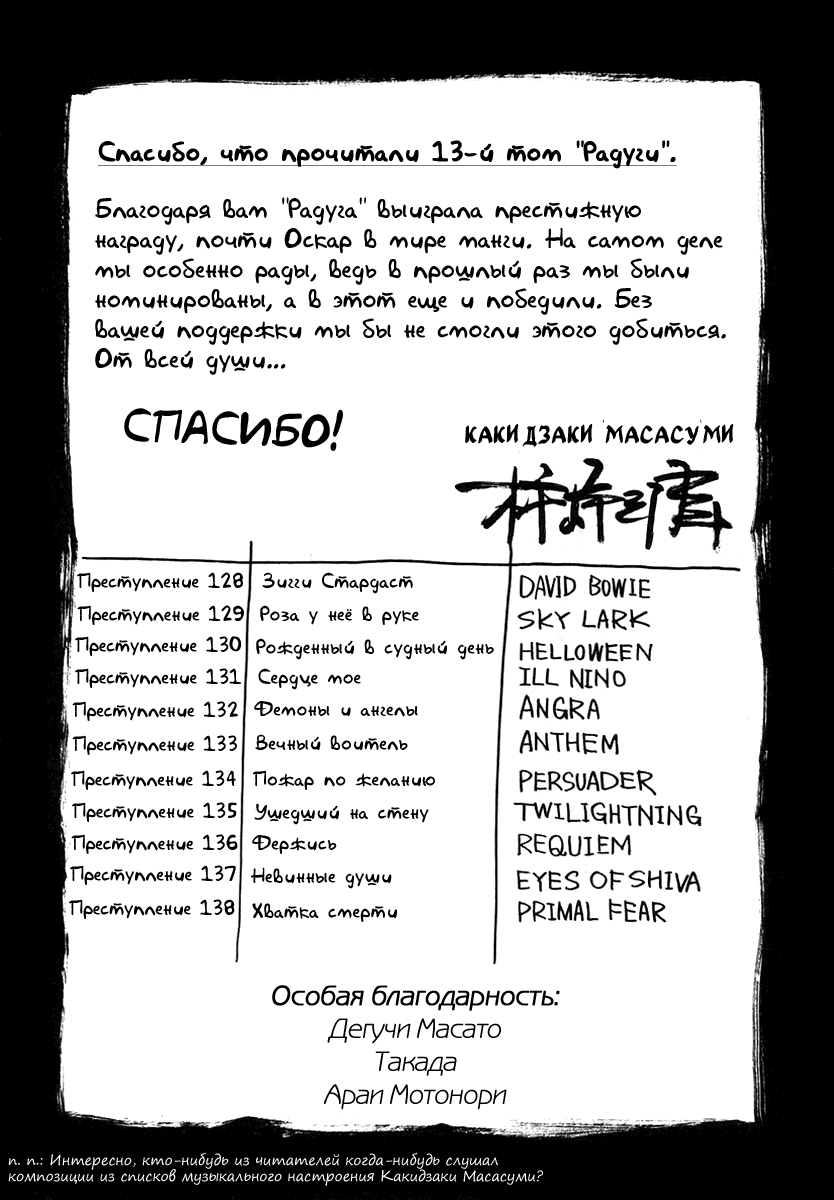 Спасибо, что прочитали 13-й том "Радуги".
Благодаря вам "Радуга" выиграла престижную
награду, почти Оскар в мире манги. На самом деле
мы особенно рады, ведь в прошлый раз мы были
номинированы, а в этот еще и победили. Без
вашей поддержки мы бы не смогли этого добиться.
От всей души...
СПАСИБО!
КАКИДЗАКИ МАСАСУМИ
Преступление 128 Зигги Стардаст DAVID BOWIE
Преступление 129 Роза у неё в руке SKY LARK
Преступление 130 Рожденный в судный день HELLOWEEN
Преступление 131 Сердце мое ILL NINO
Преступление 132 Демоны и ангелы ANGRA
Преступление 133 Вечный воитель ANTHEM
Преступление 134 Пожар по желанию PERSUADER
Преступление 135 Ушедший на стену TWILIGHTNING
Преступление 136 Держись REQUIEM
Преступление 137 Невинные души EYES OF SHIVA
Преступление 138 Хватка смерти PRIMAL FEAR
Особая благодарность:
Дегучи Масато
Такада
Араи Мотонори
п. п.: Интересно, кто-нибудь из читателей когда-нибудь слушал
композиции из списков музыкального настроения Какидзаки Масасуми?